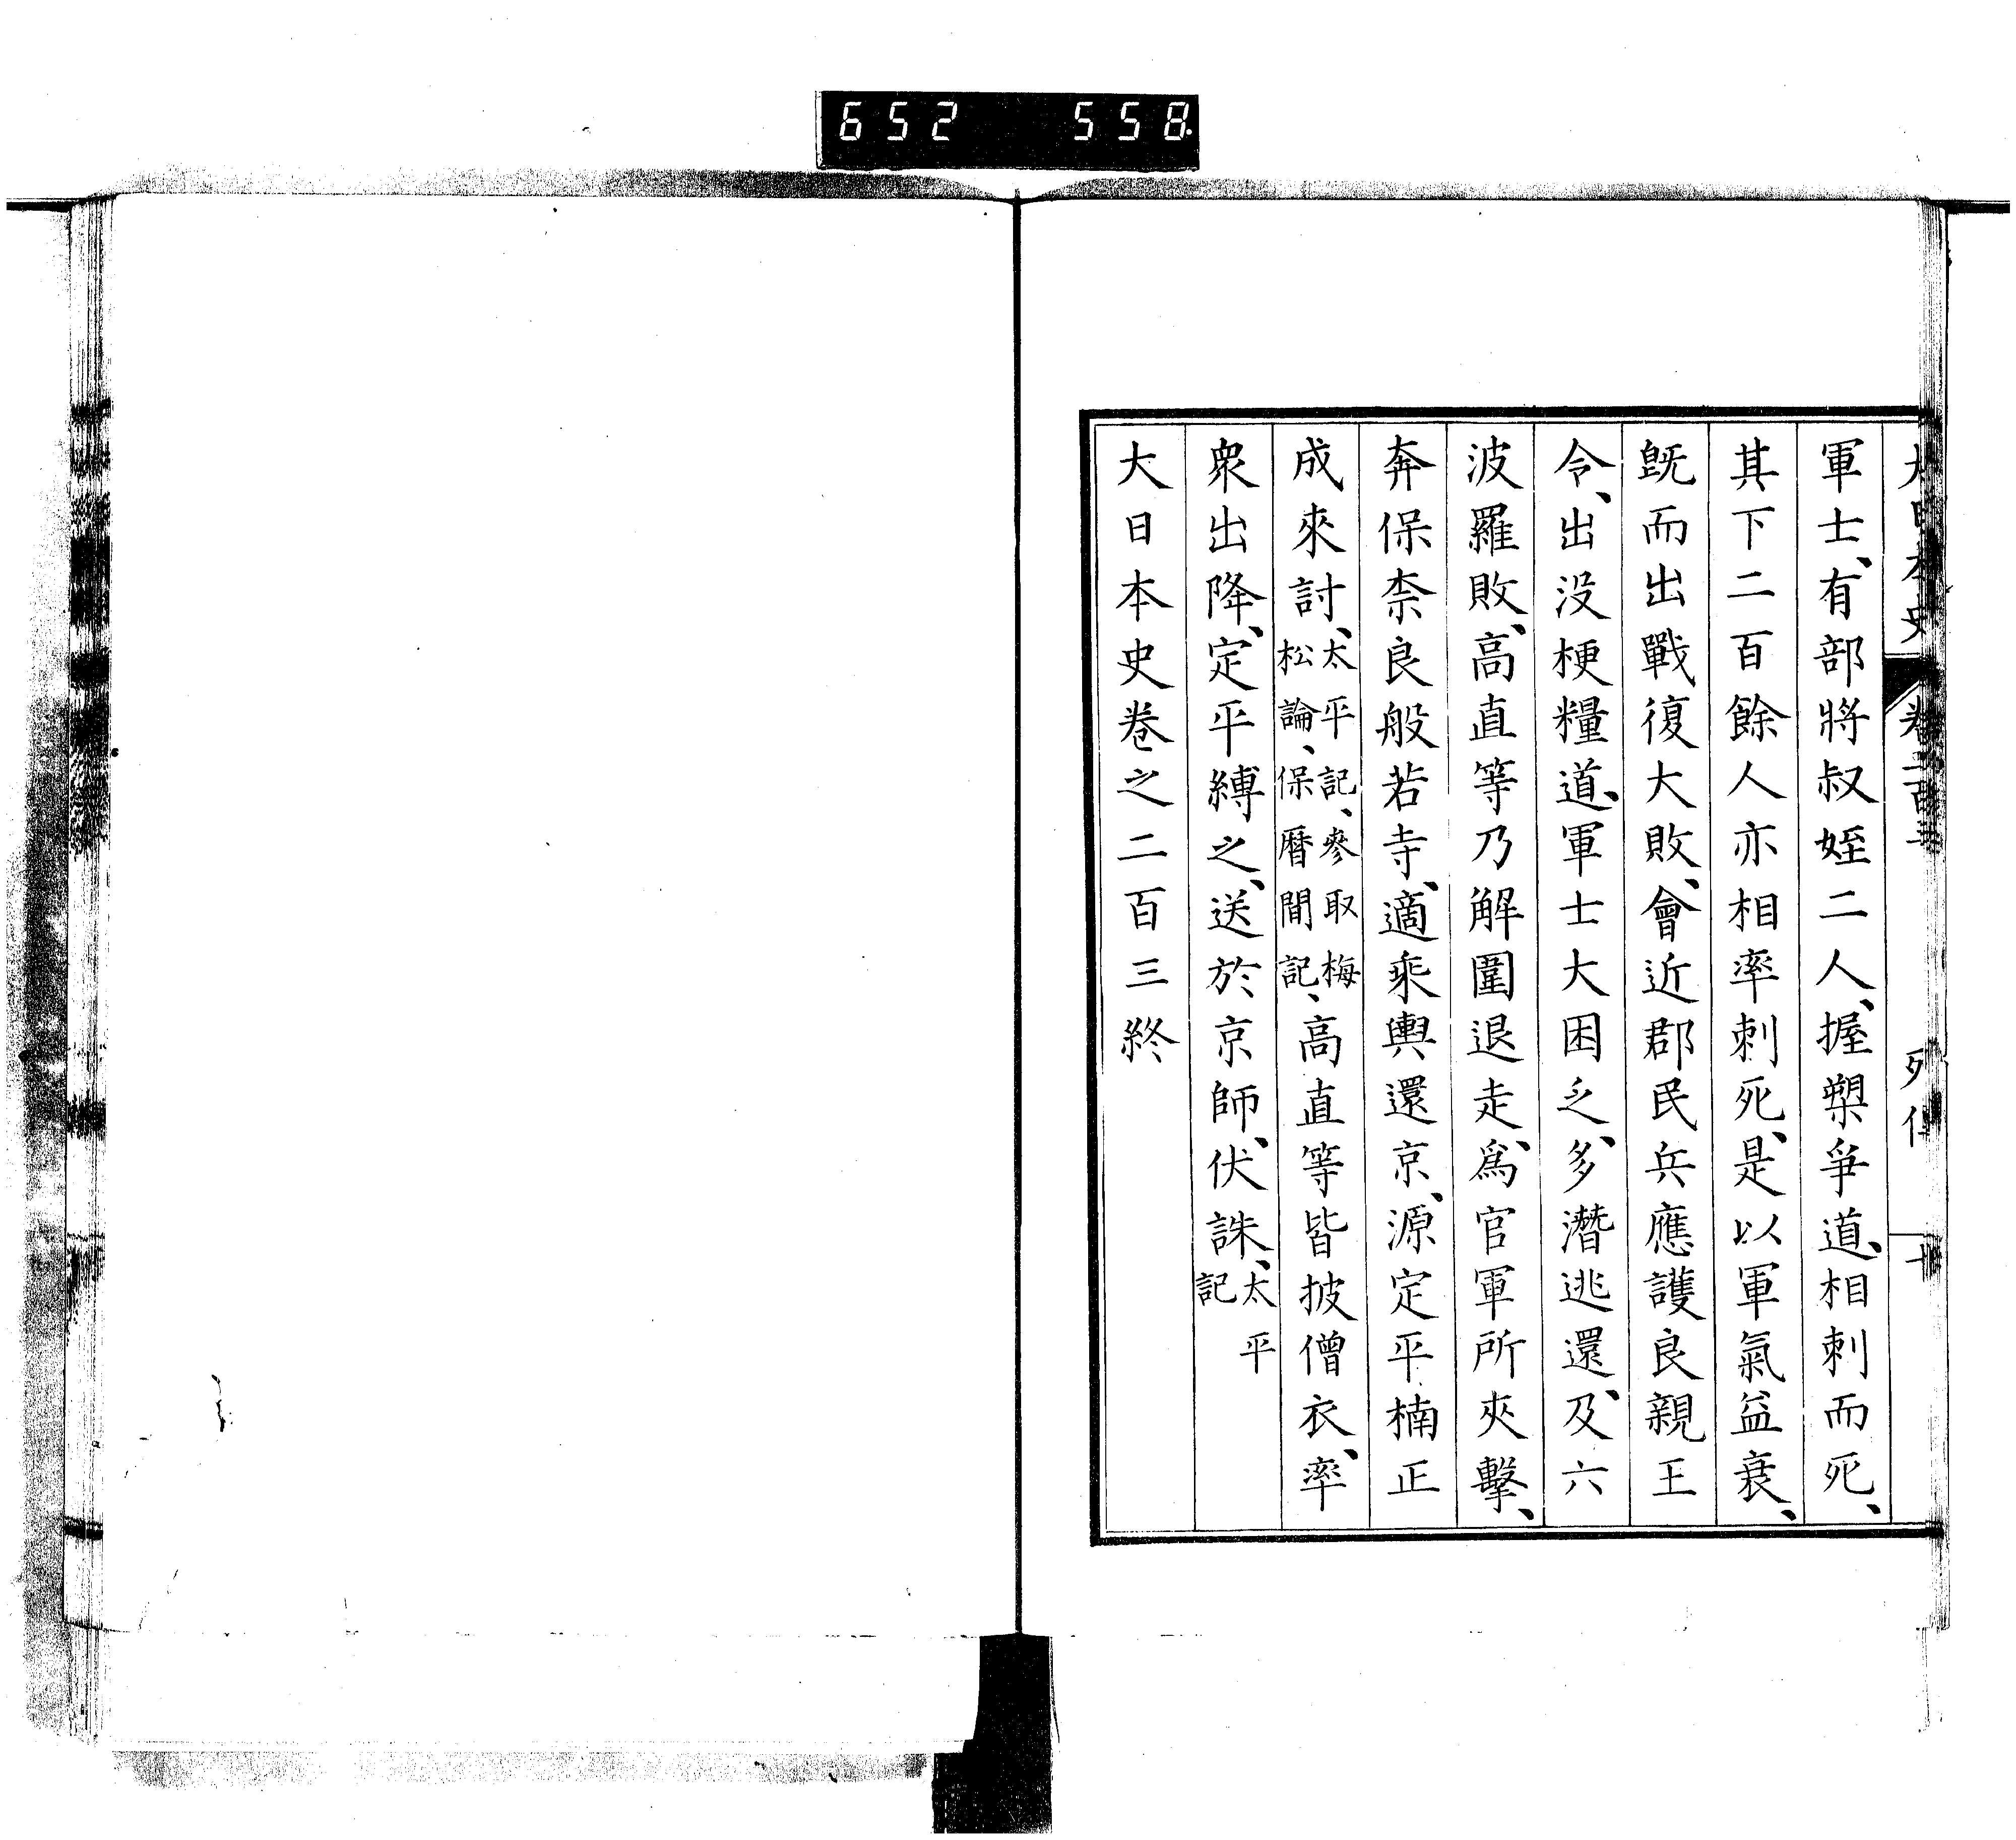 652 558
大日本史 卷二百三 列傳 十
軍士、有部將叔姪二人、握槊爭道、相刺而死、
其下二百餘人亦相率刺死、是以軍氣益衰、
旣而出戰復大敗、會近郡民兵應護良親王
令、出没梗糧道、軍士大困乏、多潛逃還、及六
波羅敗、高直等乃解圍退走、爲官軍所夾擊、
奔保柰良般若寺、適乘輿還京、源定平楠正
成來討、太平記、參取梅松論、保曆間記、高直等皆披僧衣、率
衆出降、定平縛之、送於京師、伏誅、太平記
大日本史卷之二百三終